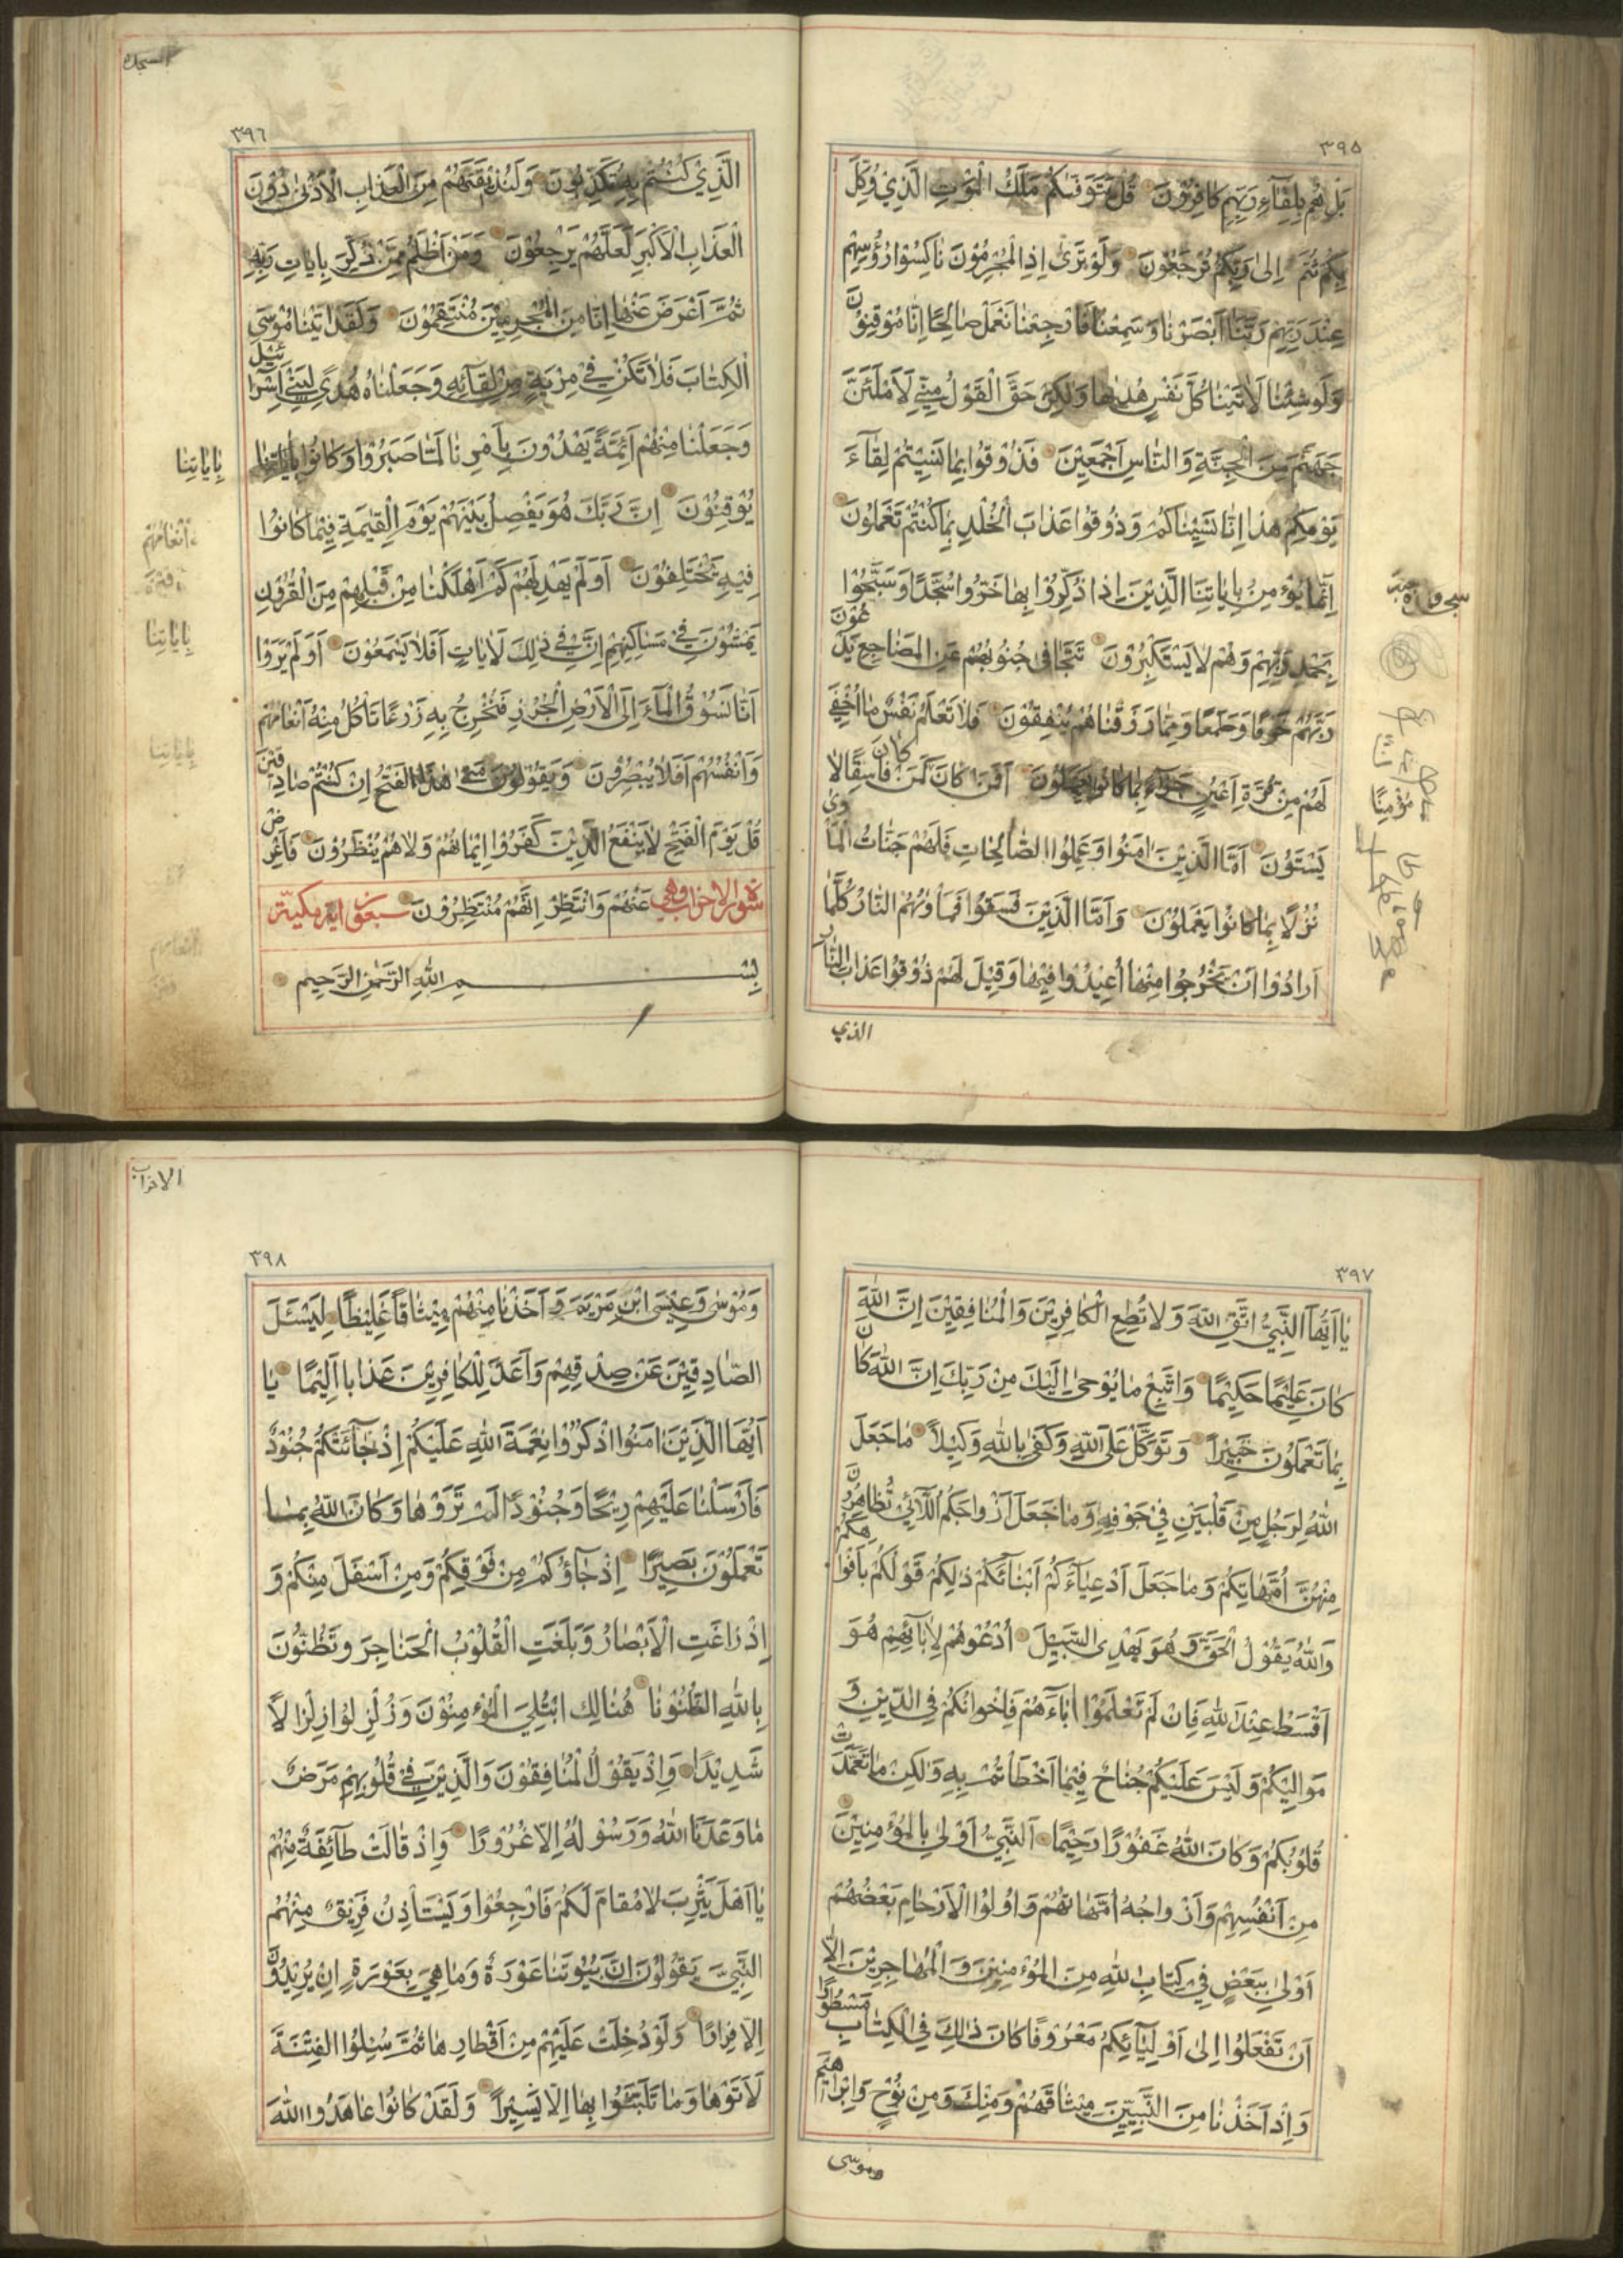 ٣٩٥
بَلْ هُمْ بِلِقَآءِ رَبِّهِمْ كَافِرُوْنَ قُلْ يَتَوَفّٰىكُمْ مَلَكُ الْمَوْتِ الَّذِيْ وُكِّلَ
بِكُمْ ثُمَّ اِلىٰ رَبِّكُمْ تُرْجَعُوْنَ وَلَوْ تَرٰى اِذِ الْمُجْرِمُوْنَ نَاكِسُوْا رُؤُسِهِمْ
عِنْدَ رَبِّهِمْ رَبَّنَا اَبْصَرْنَا وَسَمِعْنَا فَارْجِعْنَا نَعْمَلْ صَالِحًا اِنَّا مُوْقِنُوْنَ
وَلَوْ شِئْنَا لَاٰتَيْنَا كُلَّ نَفْسٍ هُدٰىهَا وَلٰكِنْ حَقَّ الْقَوْلُ مِنِّيْ لَاَمْلَئَنَّ
جَهَنَّمَ مِنَ الْجِنَّةِ وَالنَّاسِ اَجْمَعِيْنَ فَذُوْقُوْا بِمَا نَسِيْتُمْ لِقَآءَ
يَوْمِكُمْ هٰذَا اِنَّا نَسِيْنَاكُمْ وَذُوْقُوا عَذَابَ الْخُلْدِ بِمَا كُنْتُمْ تَعْمَلُوْنَ
اِنَّمَا يُؤْمِنُ بِاٰيَاتِنَا الَّذِيْنَ اِذَا ذُكِّرُوْا بِهَا خَرُّوْا سُجَّدًا وَسَبَّحُوْا
بِحَمْدِ رَبِّهِمْ وَهُمْ لَا يَسْتَكْبِرُوْنَ تَتَجَافٰى جُنُوْبُهُمْ عَنِ الْمَضَاجِعِ يَدْعُوْنَ
رَبَّهُمْ خَوْفًا وَطَمَعًا وَمِمَّا رَزَقْنَاهُمْ يُنْفِقُوْنَ فَلَا تَعْلَمُ نَفْسٌ مَا اُخْفِيَ
لَهُمْ مِنْ قُرَّةِ اَعْيُنٍ جَزَآءً بِمَا كَانُوْا يَعْمَلُوْنَ اَفَمَنْ كَانَ كَمَنْ كَانَ فَاسِقًا لَا
مُؤْمِنًا
يَسْتَوُوْنَ اَمَّا الَّذِيْنَ اٰمَنُوْا وَعَمِلُوا الصَّالِحَاتِ فَلَهُمْ جَنَّاتُ الْمَأْوٰى
نُزُلًا بِمَا كَانُوْا يَعْمَلُوْنَ وَاَمَّا الَّذِيْنَ فَسَقُوْا فَمَأْوٰىهُمُ النَّارُ كُلَّمَا
اَرَادُوْا اَنْ يَخْرُجُوْا مِنْهَا اُعِيْدُوْا فِيْهَا وَقِيْلَ لَهُمْ ذُوْقُوْا عَذَابَ النَّارِ
الذي
السجدة
٣٩٦
الَّذِيْ كُنْتُمْ بِهٖ تُكَذِّبُوْنَ وَلَنُذِيْقَنَّهُمْ مِنَ الْعَذَابِ الْاَدْنٰى دُوْنَ
الْعَذَابِ الْاَكْبَرِ لَعَلَّهُمْ يَرْجِعُوْنَ وَمَنْ اَظْلَمُ مِمَّنْ ذُكِّرَ بِاٰيَاتِ رَبِّهٖ
ثُمَّ اَعْرَضَ عَنْهَا اِنَّا مِنَ الْمُجْرِمِيْنَ مُنْتَقِمُوْنَ وَلَقَدْ اٰتَيْنَا مُوْسٰى
الْكِتَابَ فَلَا تَكُنْ فِيْ مِرْيَةٍ مِنْ لِقَآئِهٖ وَجَعَلْنَاهُ هُدًى لِبَنِيْ اِسْرَآئِيْلَ
وَجَعَلْنَا مِنْهُمْ اَئِمَّةً يَهْدُوْنَ بِاَمْرِنَا لَمَّا صَبَرُوْا وَكَانُوْا بِاٰيَاتِنَا
بِاٰيَاتِنَا
يُوْقِنُوْنَ اِنَّ رَبَّكَ هُوَ يَفْصِلُ بَيْنَهُمْ يَوْمَ الْقِيٰمَةِ فِيْمَا كَانُوْا
فِيْهِ يَخْتَلِفُوْنَ اَوَلَمْ يَهْدِ لَهُمْ كَمْ اَهْلَكْنَا مِنْ قَبْلِهِمْ مِنَ الْقُرُوْنِ
يَمْشُوْنَ فِيْ مَسَاكِنِهِمْ اِنَّ فِيْ ذٰلِكَ لَاٰيَاتٍ اَفَلَا يَسْمَعُوْنَ اَوَلَمْ يَرَوْا
اَنَّا نَسُوْقُ الْمَآءَ اِلَى الْاَرْضِ الْجُرُزِ فَنُخْرِجُ بِهٖ زَرْعًا تَاْكُلُ مِنْهُ اَنْعَامُهُمْ
وَاَنْفُسُهُمْ اَفَلَا يُبْصِرُوْنَ وَيَقُوْلُوْنَ مَتٰى هٰذَا الْفَتْحُ اِنْ كُنْتُمْ صَادِقِيْنَ
قُلْ يَوْمَ الْفَتْحِ لَا يَنْفَعُ الَّذِيْنَ كَفَرُوْا اِيْمَانُهُمْ وَلَا هُمْ يُنْظَرُوْنَ فَاَعْرِضْ
عَنْهُمْ وَانْتَظِرْ اِنَّهُمْ مُنْتَظِرُوْنَ
سُوْرَةُ الْاَحْزَابِ وَهِيَ سبعون اية مكية
بِسْمِ اللهِ الرَّحْمٰنِ الرَّحِيْمِ
٣٩٧
يَا اَيُّهَا النَّبِيُّ اتَّقِ اللّٰهَ وَلَا تُطِعِ الْكَافِرِيْنَ وَالْمُنَافِقِيْنَ اِنَّ اللّٰهَ
كَانَ عَلِيْمًا حَكِيْمًا وَاتَّبِعْ مَا يُوْحٰى اِلَيْكَ مِنْ رَبِّكَ اِنَّ اللّٰهَ كَانَ
بِمَا تَعْمَلُوْنَ خَبِيْرًا وَتَوَكَّلْ عَلَى اللّٰهِ وَكَفٰى بِاللّٰهِ وَكِيْلًا مَا جَعَلَ
اللّٰهُ لِرَجُلٍ مِنْ قَلْبَيْنِ فِيْ جَوْفِهٖ وَمَا جَعَلَ اَزْوَاجَكُمُ اللَّآئِيْ تُظَاهِرُوْنَ
مِنْهُنَّ اُمَّهَاتِكُمْ وَمَا جَعَلَ اَدْعِيَآءَكُمْ اَبْنَآئَكُمْ ذٰلِكُمْ قَوْلُكُمْ بِاَفْوَاهِكُمْ
وَاللّٰهُ يَقُوْلُ الْحَقَّ وَهُوَ يَهْدِى السَّبِيْلَ اُدْعُوْهُمْ لِاٰبَآئِهِمْ هُوَ
اَقْسَطُ عِنْدَ اللّٰهِ فَاِنْ لَمْ تَعْلَمُوْا اٰبَآءَهُمْ فَاِخْوَانُكُمْ فِي الدِّيْنِ وَ
مَوَالِيْكُمْ وَلَيْسَ عَلَيْكُمْ جُنَاحٌ فِيْمَا اَخْطَأْتُمْ بِهٖ وَلٰكِنْ مَا تَعَمَّدَتْ
قُلُوْبُكُمْ وَكَانَ اللّٰهُ غَفُوْرًا رَحِيْمًا اَلنَّبِيُّ اَوْلٰى بِالْمُؤْمِنِيْنَ
مِنْ اَنْفُسِهِمْ وَاَزْوَاجُهُ اُمَّهَاتُهُمْ وَاُولُوا الْاَرْحَامِ بَعْضُهُمْ
اَوْلٰى بِبَعْضٍ فِيْ كِتَابِ اللّٰهِ مِنَ الْمُؤْمِنِيْنَ وَالْمُهَاجِرِيْنَ اِلَّا
اَنْ تَفْعَلُوْا اِلٰى اَوْلِيَآئِكُمْ مَعْرُوْفًا كَانَ ذٰلِكَ فِي الْكِتَابِ مَسْطُوْرًا
وَاِذْ اَخَذْنَا مِنَ النَّبِيِّيْنَ مِيْثَاقَهُمْ وَمِنْكَ وَمِنْ نُوْحٍ وَاِبْرَاهِيْمَ
وموسى
الاحزاب
٣٩٨
وَمُوْسٰى وَعِيْسَى ابْنِ مَرْيَمَ وَاَخَذْنَا مِنْهُمْ مِيْثَاقًا غَلِيْظًا لِيَسْئَلَ
الصَّادِقِيْنَ عَنْ صِدْقِهِمْ وَاَعَدَّ لِلْكَافِرِيْنَ عَذَابًا اَلِيْمًا يَا
اَيُّهَا الَّذِيْنَ اٰمَنُوا اذْكُرُوْا نِعْمَةَ اللّٰهِ عَلَيْكُمْ اِذْ جَآئَتْكُمْ جُنُوْدٌ
فَاَرْسَلْنَا عَلَيْهِمْ رِيْحًا وَجُنُوْدًا لَمْ تَرَوْهَا وَكَانَ اللّٰهُ بِمَا
تَعْمَلُوْنَ بَصِيْرًا اِذْ جَآؤُكُمْ مِنْ فَوْقِكُمْ وَمِنْ اَسْفَلَ مِنْكُمْ وَ
اِذْ زَاغَتِ الْاَبْصَارُ وَبَلَغَتِ الْقُلُوْبُ الْحَنَاجِرَ وَتَظُنُّوْنَ
بِاللّٰهِ الظُّنُوْنَا هُنَالِكَ ابْتُلِيَ الْمُؤْمِنُوْنَ وَزُلْزِلُوْا زِلْزَالًا
شَدِيْدًا وَاِذْ يَقُوْلُ الْمُنَافِقُوْنَ وَالَّذِيْنَ فِيْ قُلُوْبِهِمْ مَرَضٌ
مَا وَعَدَنَا اللّٰهُ وَرَسُوْلُهُ اِلَّا غُرُوْرًا وَاِذْ قَالَتْ طَآئِفَةٌ مِنْهُمْ
يَا اَهْلَ يَثْرِبَ لَا مُقَامَ لَكُمْ فَارْجِعُوْا وَيَسْتَاْذِنُ فَرِيْقٌ مِنْهُمُ
النَّبِيَّ يَقُوْلُوْنَ اِنَّ بُيُوْتَنَا عَوْرَةٌ وَمَا هِيَ بِعَوْرَةٍ اِنْ يُرِيْدُوْنَ
اِلَّا فِرَارًا وَلَوْ دُخِلَتْ عَلَيْهِمْ مِنْ اَقْطَارِهَا ثُمَّ سُئِلُوا الْفِتْنَةَ
لَاٰتَوْهَا وَمَا تَلَبَّثُوْا بِهَا اِلَّا يَسِيْرًا وَلَقَدْ كَانُوْا عَاهَدُوا اللّٰهَ